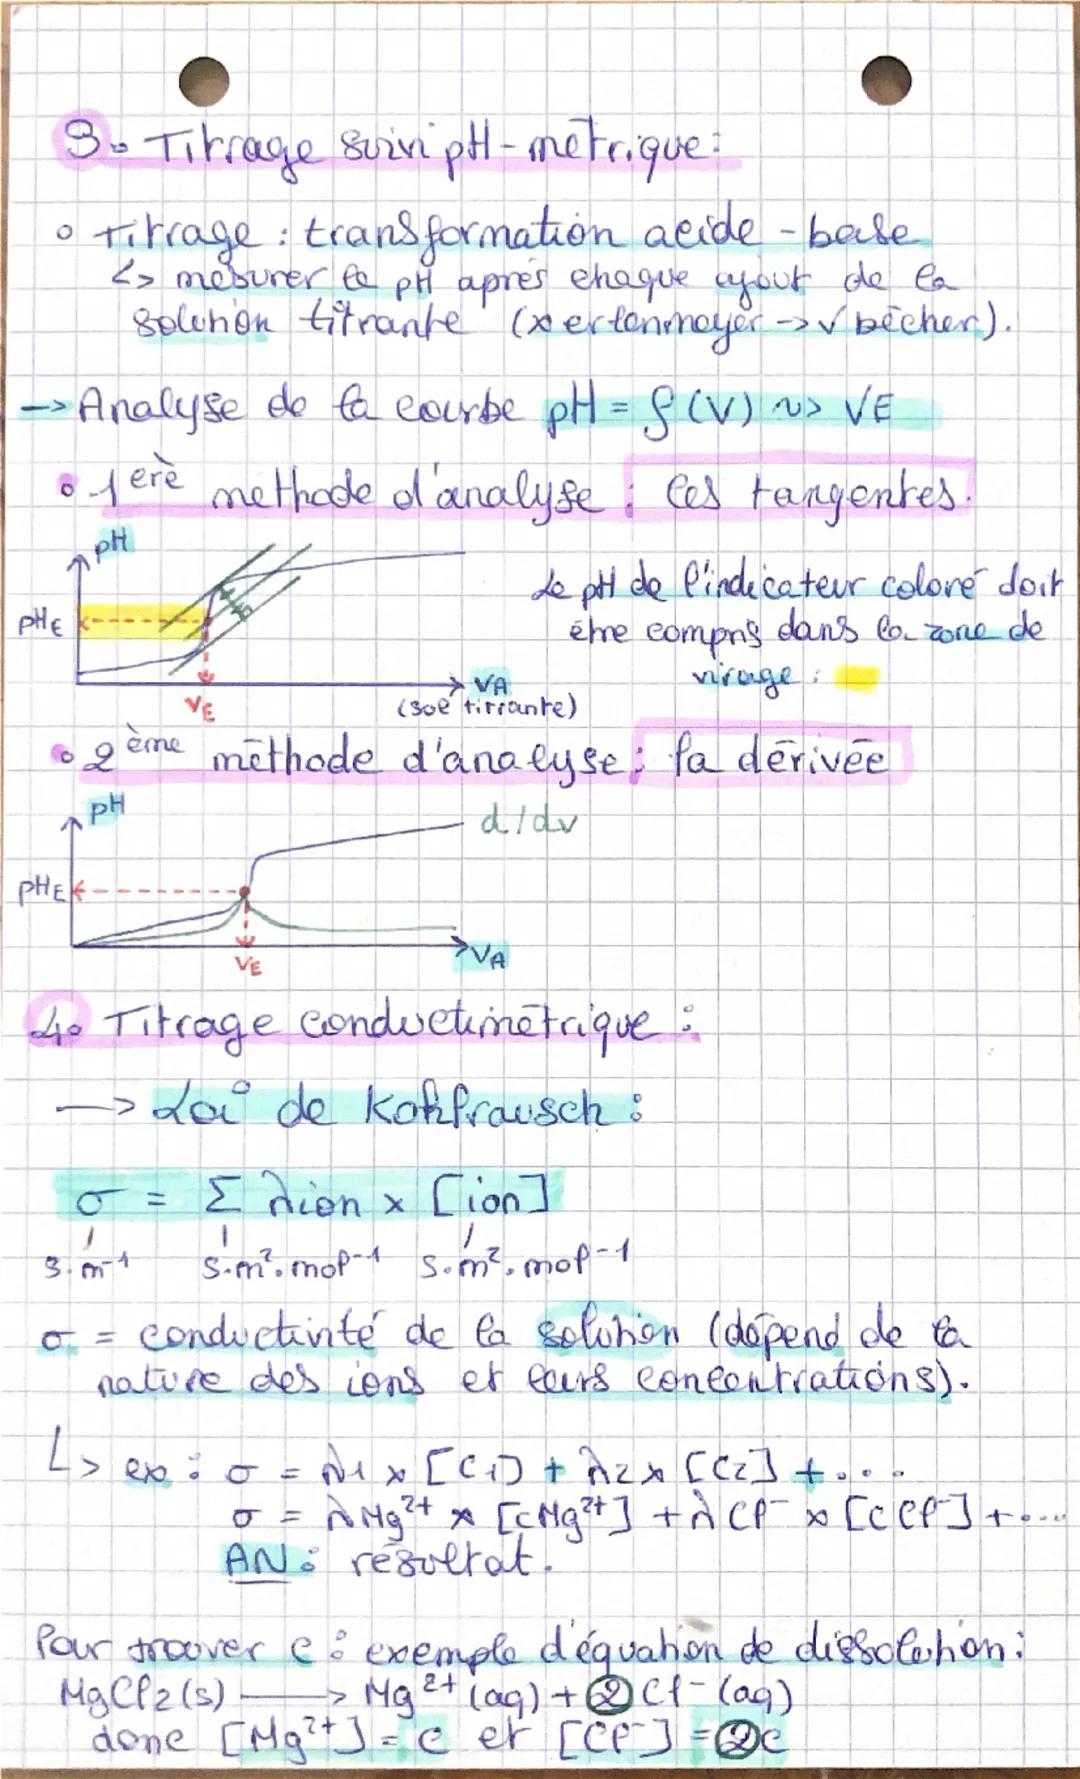 3. Titrage suivi pH-métrique :
◦ Titrage : transformation acide-base
↳ mesurer le pH après chaque ajout de la
solution titrante (x erlenmayer -> √ bécher).
-> Analyse de la courbe pH = f(V) ~> VE
◦ 1ère méthode d'analyse : les tangentes.
pH
Le pH de l'indicateur coloré doit
pHE
être compris dans la zone de
virage :
VA
VE
(sol titrante)
◦ 2ème méthode d'analyse : la dérivée
pH
d/dv
pHE
VA
VE
4. Titrage conductimétrique :
-> Loi de Kohlrausch :
σ = Σ λion x [ion]
S.m-1 S.m².mol-1 S.m².mol-1
σ = conductivité de la solution (dépend de la
nature des ions et leurs concentrations).
↳ ex : σ = λ1 x [C1] + λ2 x [C2] + ...
σ = λMg²+ x [cMg²+] + λCl- x [cCl-] + ....
AN : résultat.
Pour trouver c : exemple d'équation de dissolution :
MgCl2(s) -> Mg²+ (aq) + 2 Cl- (aq)
donc [Mg²+] = c et [Cl-] = 2c